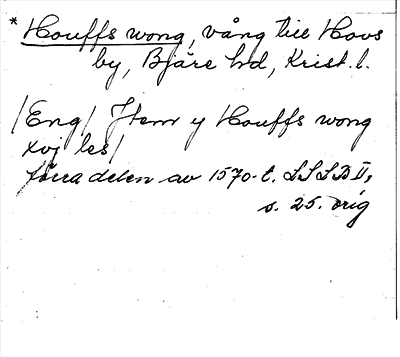 * Houffs wong, vång till Hovs
by, Bjäre hd, Krist. l.
/Eng/ Item y Houffs wong
xvj les/
förra delen av 1570-t. LSLB II,
s. 25. orig